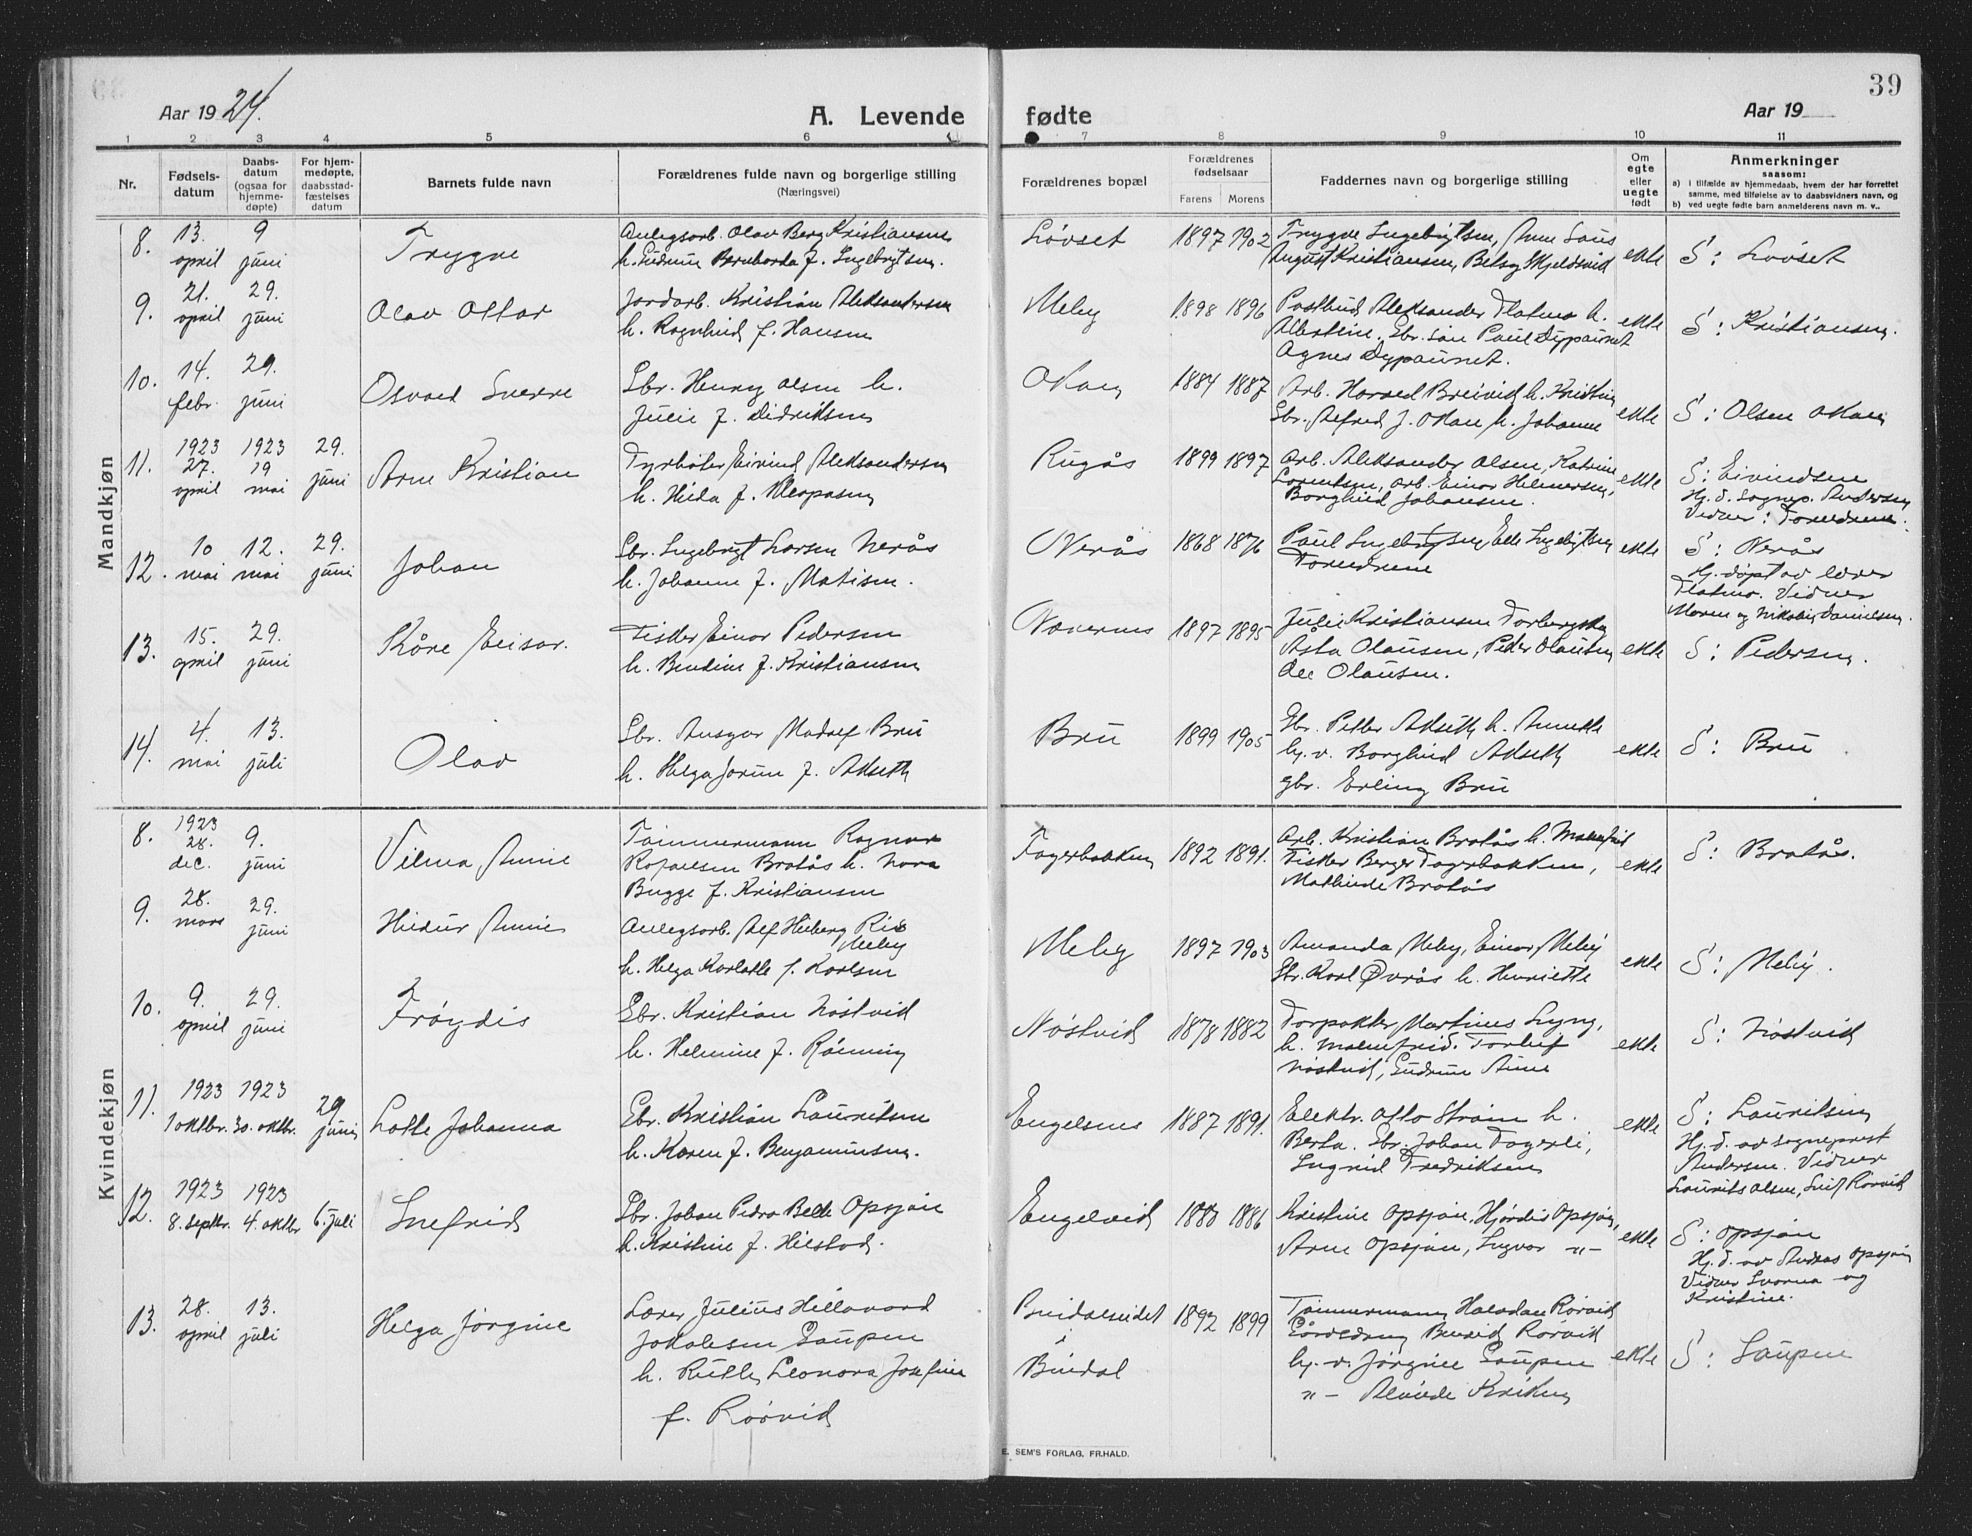 39
Aar 19 24.
A. Levende fødte
Aar 19
1 2 3 4 5 6 7 8 9 10 11
Nr.
Fødsels-
datum
Daabs-
datum
(ogsaa for
hjemme-
døpte)
For hjem-
medøpte,
daabsstad-
fæstelses
datum
Barnets fulde navn
Forældrenes fulde navn og borgerlige stilling
(Næringsvei)
Forældrenes bopæl
Forældrenes
fødselsaar
Farens Morens
Faddernes navn og borgerlige stilling
Om
egte
eller
uegte
født
Anmerkninger
saasom:
a) i tilfælde av hjemmedaab, hvem der har forrettet
samme, med tilføielse av to daabsvidners navn, og
b) ved uegte fødte barn anmelderens navn m. v..
Mandkjøn
8.
13. april
9 juni
Trygve
Anlegsarb. Olav Berg Kristiansen
h. Gudrun Bernharda f. Ingebrigtsen.
Løvset
1897 1902
Trygve Ingebrigtsen, Arne
August Kristiansen, Betsy Skjeldsvid
ekte
S: Løvset
9.
21. april
29. juni
Olav Ottar
Jordarb. Kristian Aleksandersen
h. Ragnhild f. Hansen
Meby
1898 1896
Postbud Aleksander Flatmo h.
Albertine, Gbr. søn Paul Dypaunet
Agnes Dypaunet.
ekte
S: Kristiansen.
10.
14. febr.
29. juni
Osvald Sverre
Gbr. Henry Olsen h.
Julie f. Didriksen
Okan
1884 1887
Arb. Harald Breivid h. Kristine
Gbr. Alfred J. Okan h. Johanne
ekte
S: Olsen Okan
11.
1923
27. april
1923
19 mai
29. juni
Arne Kristian
Fyrbøter Eivind Aleksandersen
h. Hilda f. Kleopasen
Rugås
1899 1897
Arb. Aleksander Olsen, Katrine
Lorentsen, arb. Einar Helmersen,
Borghild Johansen.
ekte
S: Eivindsen
Hj. d. sognep. Andersen
Vidner: Foreldrene.
12.
10 mai
12. mai
29. juni
Johan
Gbr. Ingebrigt Larsen Nerås
h. Johanna f. Matisen.
Nerås
1868 1876
Paul Ingebrigtsen, Elle Ingebrigtsen
Foreldrene
ekte
S: Nerås
Hj. døpt av lærer
Flatmo. Vidner
Maren og Nikolai Danielsen.
13.
15. april
29. juni
Kåre Elisar.
Fisker Einar Pedersen
h. Bendine f. Kristiansen
Nævernes
1897 1895
Julie Kristiansen Torbergsh.
Asta Olausen, Peder Olausen
Ole Olausen.
ekte
S: Pedersen.
14.
4. mai
13. juli
Olav
Gbr. Ansgar Madolf Bru
h. Helga Jorun f. Akseth
Bru
1899 1905
Gbr. Petter Akseth h. Annette
hj. v. Borghild Akseth
gbr. Erling Bru
ekte
S: Bru
Kvindekjøn
8.
1923
28. dec.
9. juni
Vilma Annie
Tømmermann Ragnar
Rafaelsen Bratås h. Nora
Bugge f. Kristiansen
Fagerbakken
1892 1891.
Arb. Kristian Bratås h. Malmfrid
Fisker Berger Fagerbakken,
Mathilde Bratås
ekte
S: Bratås.
9.
28. mars
29. juni
Hildur Annie
Anlegsarb. Alf Hilberg Ris
Meby
h. Helga Karlotte f. Karlsen
Meby
1897 1903
Amanda Meby, Einar Meby
Gbr. Karl Øvrås h. Henriette
ekte
S: Meby.
10.
9. april
29. juni
Frøydis
Gbr. Kristian Nøstvid
h. Helmine f. Rønning
Nøstvid
1878 1882
Forpakter Martinus Lyng,
h. Malmfrid. Torleif
Nøstvid, Gudrun Aune
ekte
S: Nøstvid
11.
1923
1 oktbr.
1923
30. oktbr.
29. juni
Lotte Johanna
Gbr. Kristian Lauritsen
h. Karen f. Benjaminsen.
Engelsnes
1887 1891.
Elektr. Otto Strøm h.
Berta. Gbr. Johan Fagerli,
Ingrid Fredriksen
ekte
S: Lauritsen
Hj. d. av sogneprest
Andersen. Vidner
Laurits Olsen, Leif Rørvid
12.
1923
8. septbr.
1923
4. oktbr
6. juli
Snefrid
Gbr. Johan Pedra Belle Opsjøn
h. Kristine f. Hilstad.
Engelvid
1880 1886
Kristine Opsjøn, Hjørdis Opsjøn,
Arne Opsjøn, Ingvar -"-
ekte
S: Opsjøn
Hj. d. av Andreas Opsjøn
Vidner Svorna og
Kristine.
13.
28. april
13. juli
Helga Jørgine
Lærer Julius Hillavard
Jakobsen Saupen
h. Ruth Leonora Josefine
f. Rørvid
Bindalseidet
i
Bindal
1892 1899
Tømmermann Halvdan Rørvid
Gårddreng Benvid Rørvid
hj. v. Jørgine Saupen
-"- Alvide Kriken
ekte
S: Saupen
E. SEM'S FORLAG, FR.HALD.